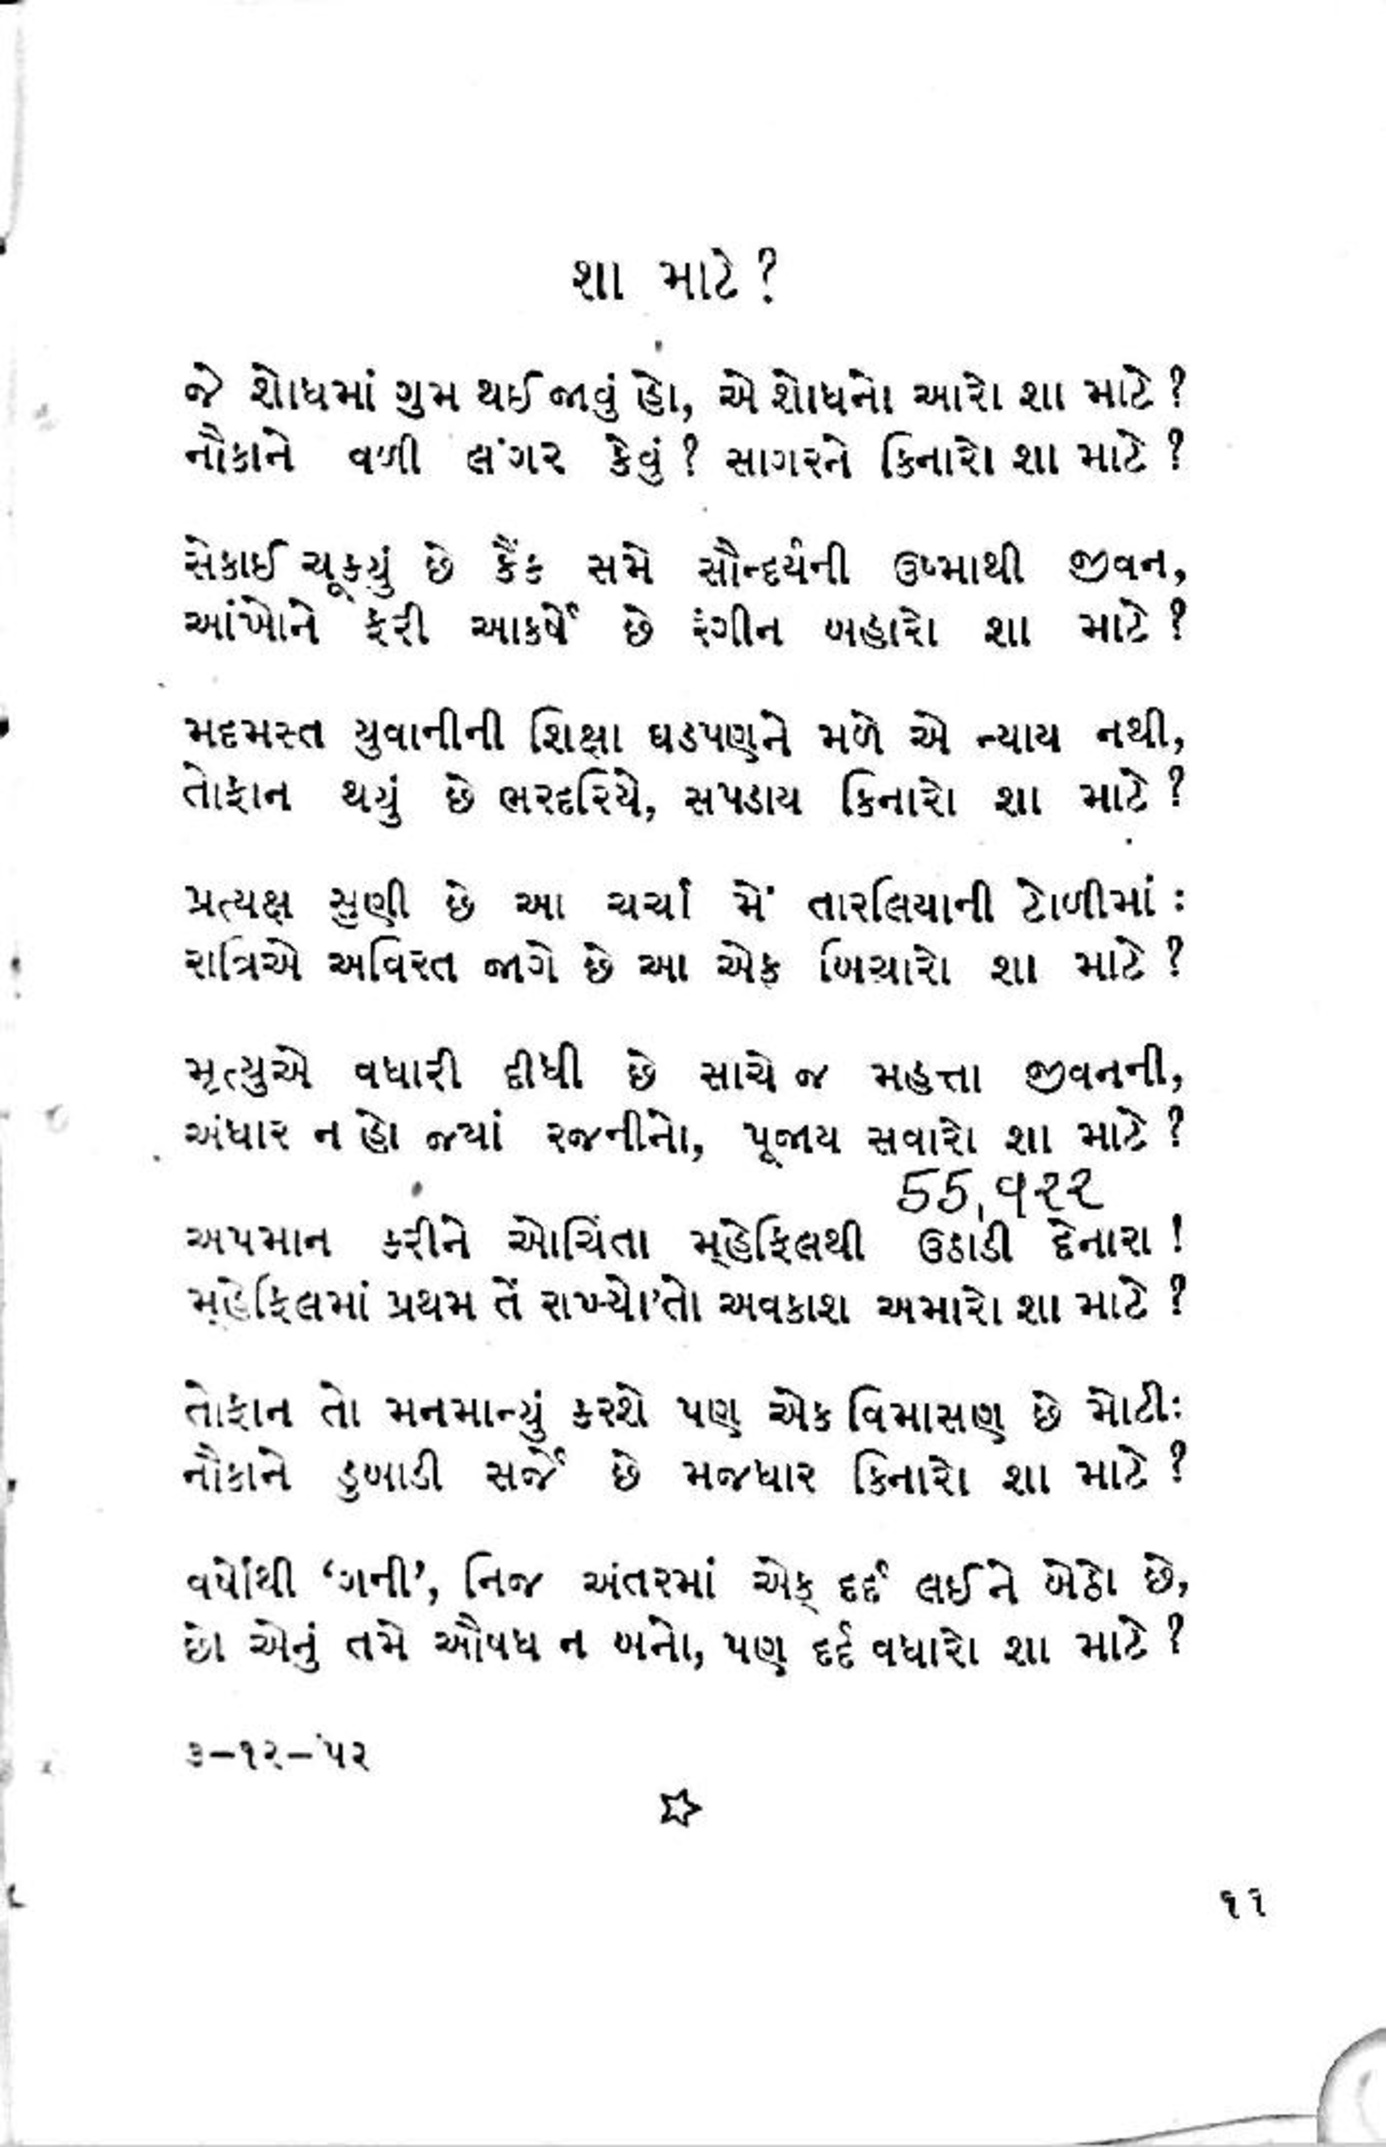 શા માટે ?
જે શોધમાં ગુમ થઈ જાવું હો, એ શોધનો આરો શા માટે ?
નૌકાને વળી લંગર કેવું ? સાગરને કિનારો શા માટે ?
સેકાઈ ચૂક્યું છે કૈંક સમે સૌન્દર્યની ઉષ્માથી જીવન,
આંખોને ફરી આકર્ષે છે રંગીન બહારો શા માટે ?
મદમસ્ત યુવાનીની શિક્ષા ઘડપણને મળે એ ન્યાય નથી,
તોફાન થયું છે ભરદરિયે, સપડાય કિનારો શા માટે ?
પ્રત્યક્ષ સુણી છે આ ચર્ચા મેં તારલિયાની ટોળીમાં :
રાત્રિએ અવિરત જાગે છે આ એક બિચારો શા માટે ?
મૃત્યુએ વધારી દીધી છે સાચે જ મહત્તા જીવનની,
અંધાર ન હો જ્યાં રજનીનો, પૂજાય સવારો શા માટે ?
55,૧૨૨
અપમાન કરીને ઓચિંતા મ્હેફિલથી ઉઠાડી દેનારા !
મ્હેફિલમાં પ્રથમ તેં રાખ્યો'તો અવકાશ અમારો શા માટે ?
તોફાન તો મનમાન્યું કરશે પણ એક વિમાસણ છે મોટીઃ
નૌકાને ડુબાડી સર્જે છે મજધાર કિનારો શા માટે ?
વર્ષોથી ‘ગની’, નિજ અંતરમાં એક્ દર્દ લઈને બેઠો છે,
છો એનું તમે ઔષધ ન બનો, પણ દર્દ વધારો શા માટે ?
૩-૧૨-'૫૨